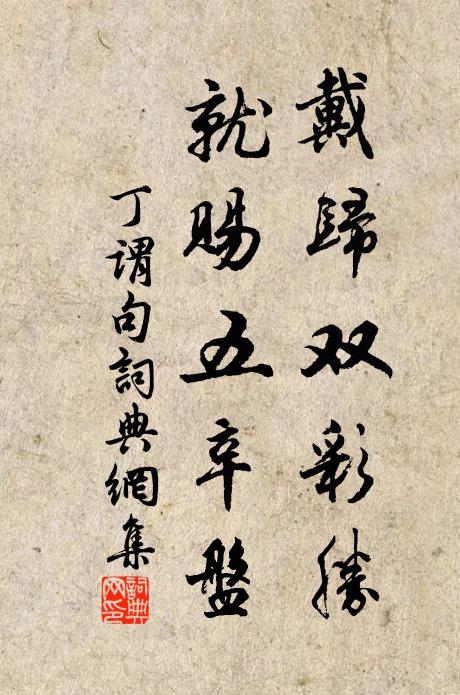 戴歸双彩勝
就賜五辛盤
丁謂句詞典網集
詞典网印